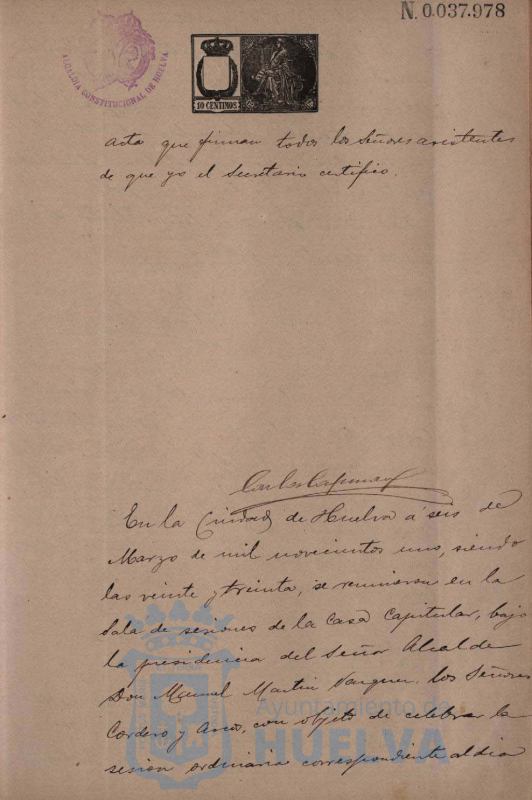 N. 0.037.978
ALCALDIA CONSTITUCIONAL DE HUELVA
10 CENTIMOS
acta que firman todos los Señores asistentes
de que yo el Secretario certifico.
Carlos
En la Ciudad de Huelva á seis de
Marzo de mil novecientos uno, siendo
las veinte y treinta, se reunieron en la
Sala de sesiones de la Casa Capitular, bajo
la presidencia del Señor Alcalde
Don Manuel Martin Vazquez, los Señores
Cordero y con objeto de celebrar la
sesion ordinaria correspondiente al dia
Ayuntamiento de
HUELVA